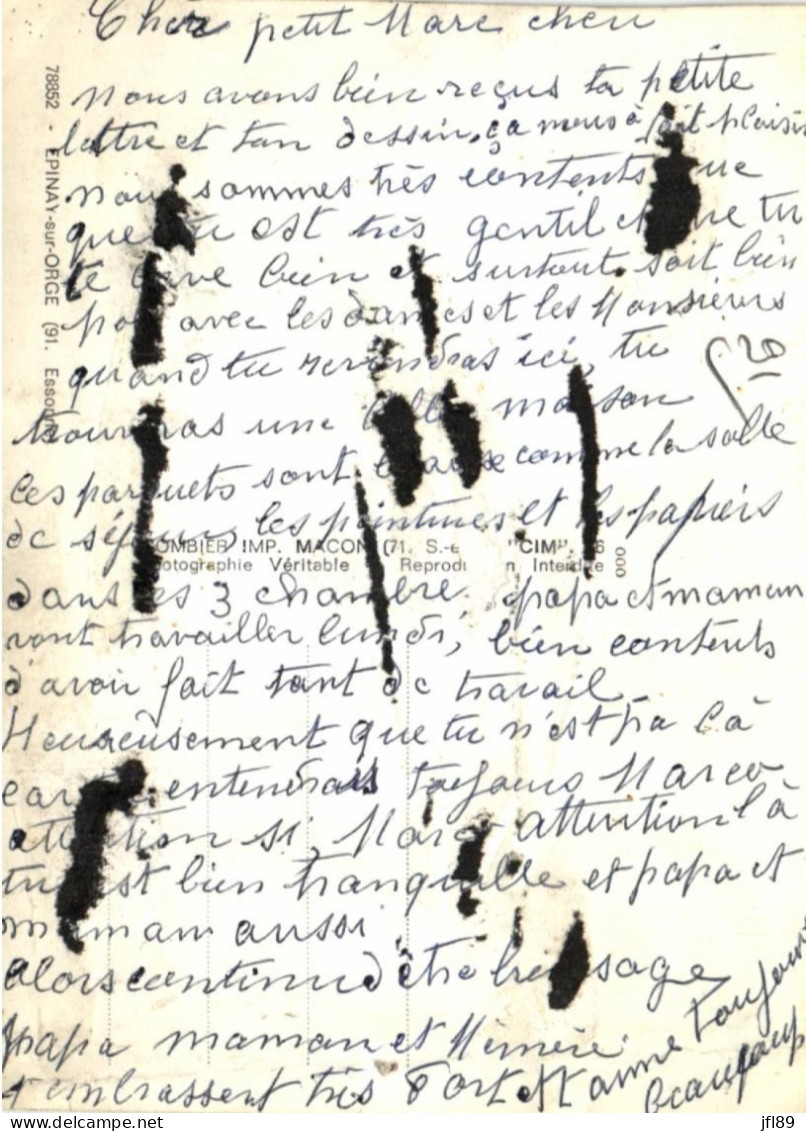 Cher petit Marc cheri
nous avons bien reçus ta petite
lettre et tan dessin, ça nous à fait plaisir
nous sommes très contents que
que tu est très gentil et que tu
te lave bien et surtout soit bien
poli avec les dames et les Monsieurs
quand tu reviendras ici, tu
trouveras une belle maison
Ces parquets sont comme la salle
de séjour, les peintures et les papiers
dans les 3 chambre. papa et maman
vont travailler lundi, bien contents
d'avoir fait tant de travail
Heureusement que tu n'est pa là
car entenderais toujours Marco
attention si, Marco attention là
tu est bien tranquille et papa et
maman aussi
Alors continu d être bien sage
papa maman et Mémère
t'embrassent très Fort et t'aime toujours
beaucoup
78852 - EPINAY-sur-ORGE (91. Essonne)
COMBIER IMP. MACON (71. S.-e "CIM"
Photographie Véritable Reproduction Interdite
000
jfl89